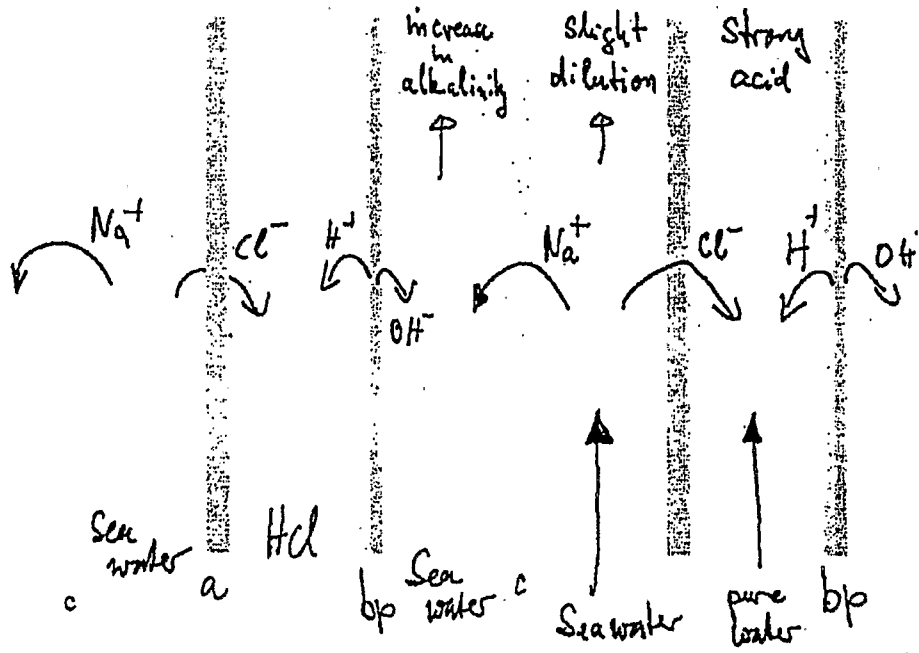 increase
in
alkalinity
Slight
dilution
Strong
acid
Na⁺
Cl⁻
H⁺
OH⁻
Na⁺
Cl⁻
H⁺
OH⁻
Sea
water
HCl
Sea
water
Seawater
pure
water
c
a
bp
c
bp